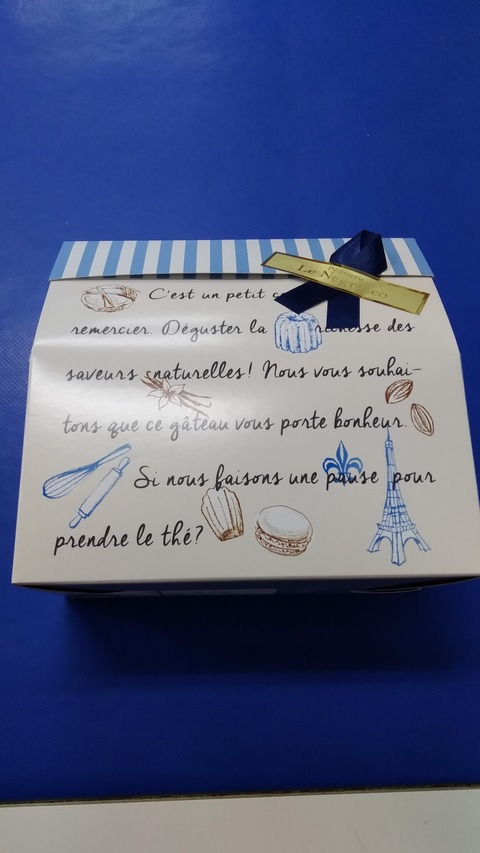 Patisserie
Le Negresco
C'est un petit
remercier. Déguster la richesse des
saveurs naturelles! Nous vous souhai-
tons que ce gâteau vous porte bonheur.
Si nous faisons une pause pour
prendre le thé?